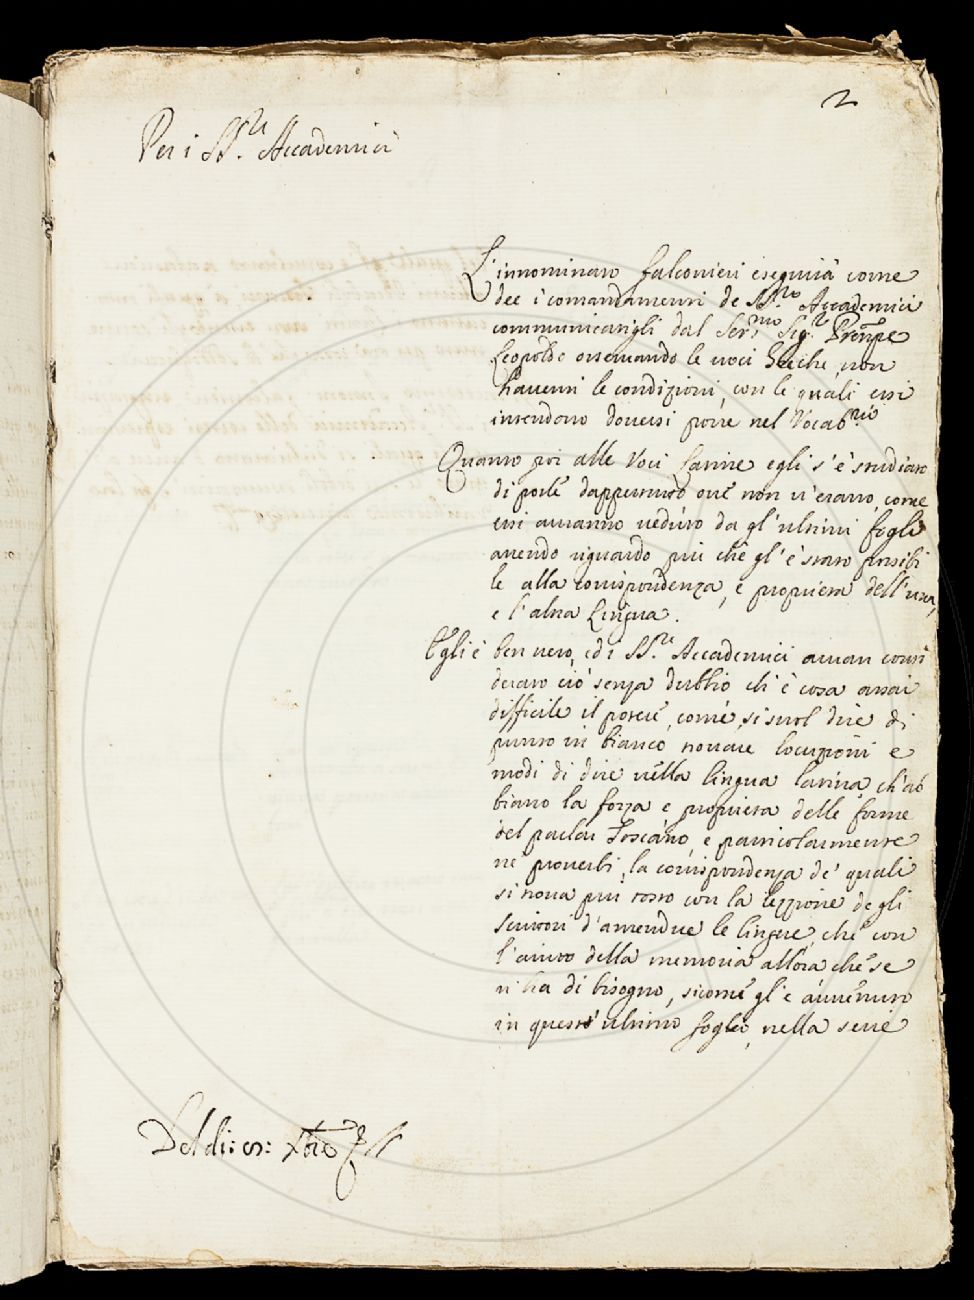 2
Per i SS.ri Accademici
L'innominato Falconieri eseguirà come
dee i comandamenti de SS.ri Accademici
communicatigli dal Ser.mo Sig.r Prenpe
Leopoldo osservando le voci Greche, non
haventi le condizioni, con le quali essi
intendono doversi porre nel Vocab.rio
Quanto poi alle Voci Latine egli s'è studiato
di porle dappertutto ove non v'erano, come
essi avranno veduto da gl'ultimi fogli
avendo riguardo più che gl'è stato possibi
le alla corrispondenza, e proprietà dell'una,
e l'altra Lingua.
Egli è ben vero, ed i SS.ri Accademici avran consi
derato ciò senza dubbio ch'è cosa assai
difficile il potere, come si suol dire di
punto in bianco trovare locuzioni e
modi di dire nella lingua latina, ch'ab
biano la forza e proprietà delle forme
del parlar Toscano, e particolarmente
ne' proverbi, la corrispondenza de' quali
si trova più tosto con la lezzione degli
scrittori d'amendue le lingue, che con
l'aiuto della memoria allora che se
n'ha di bisogno, sicome gl'è avvenuto
in questo ultimo foglio, nella serie
Del di: : Xbre